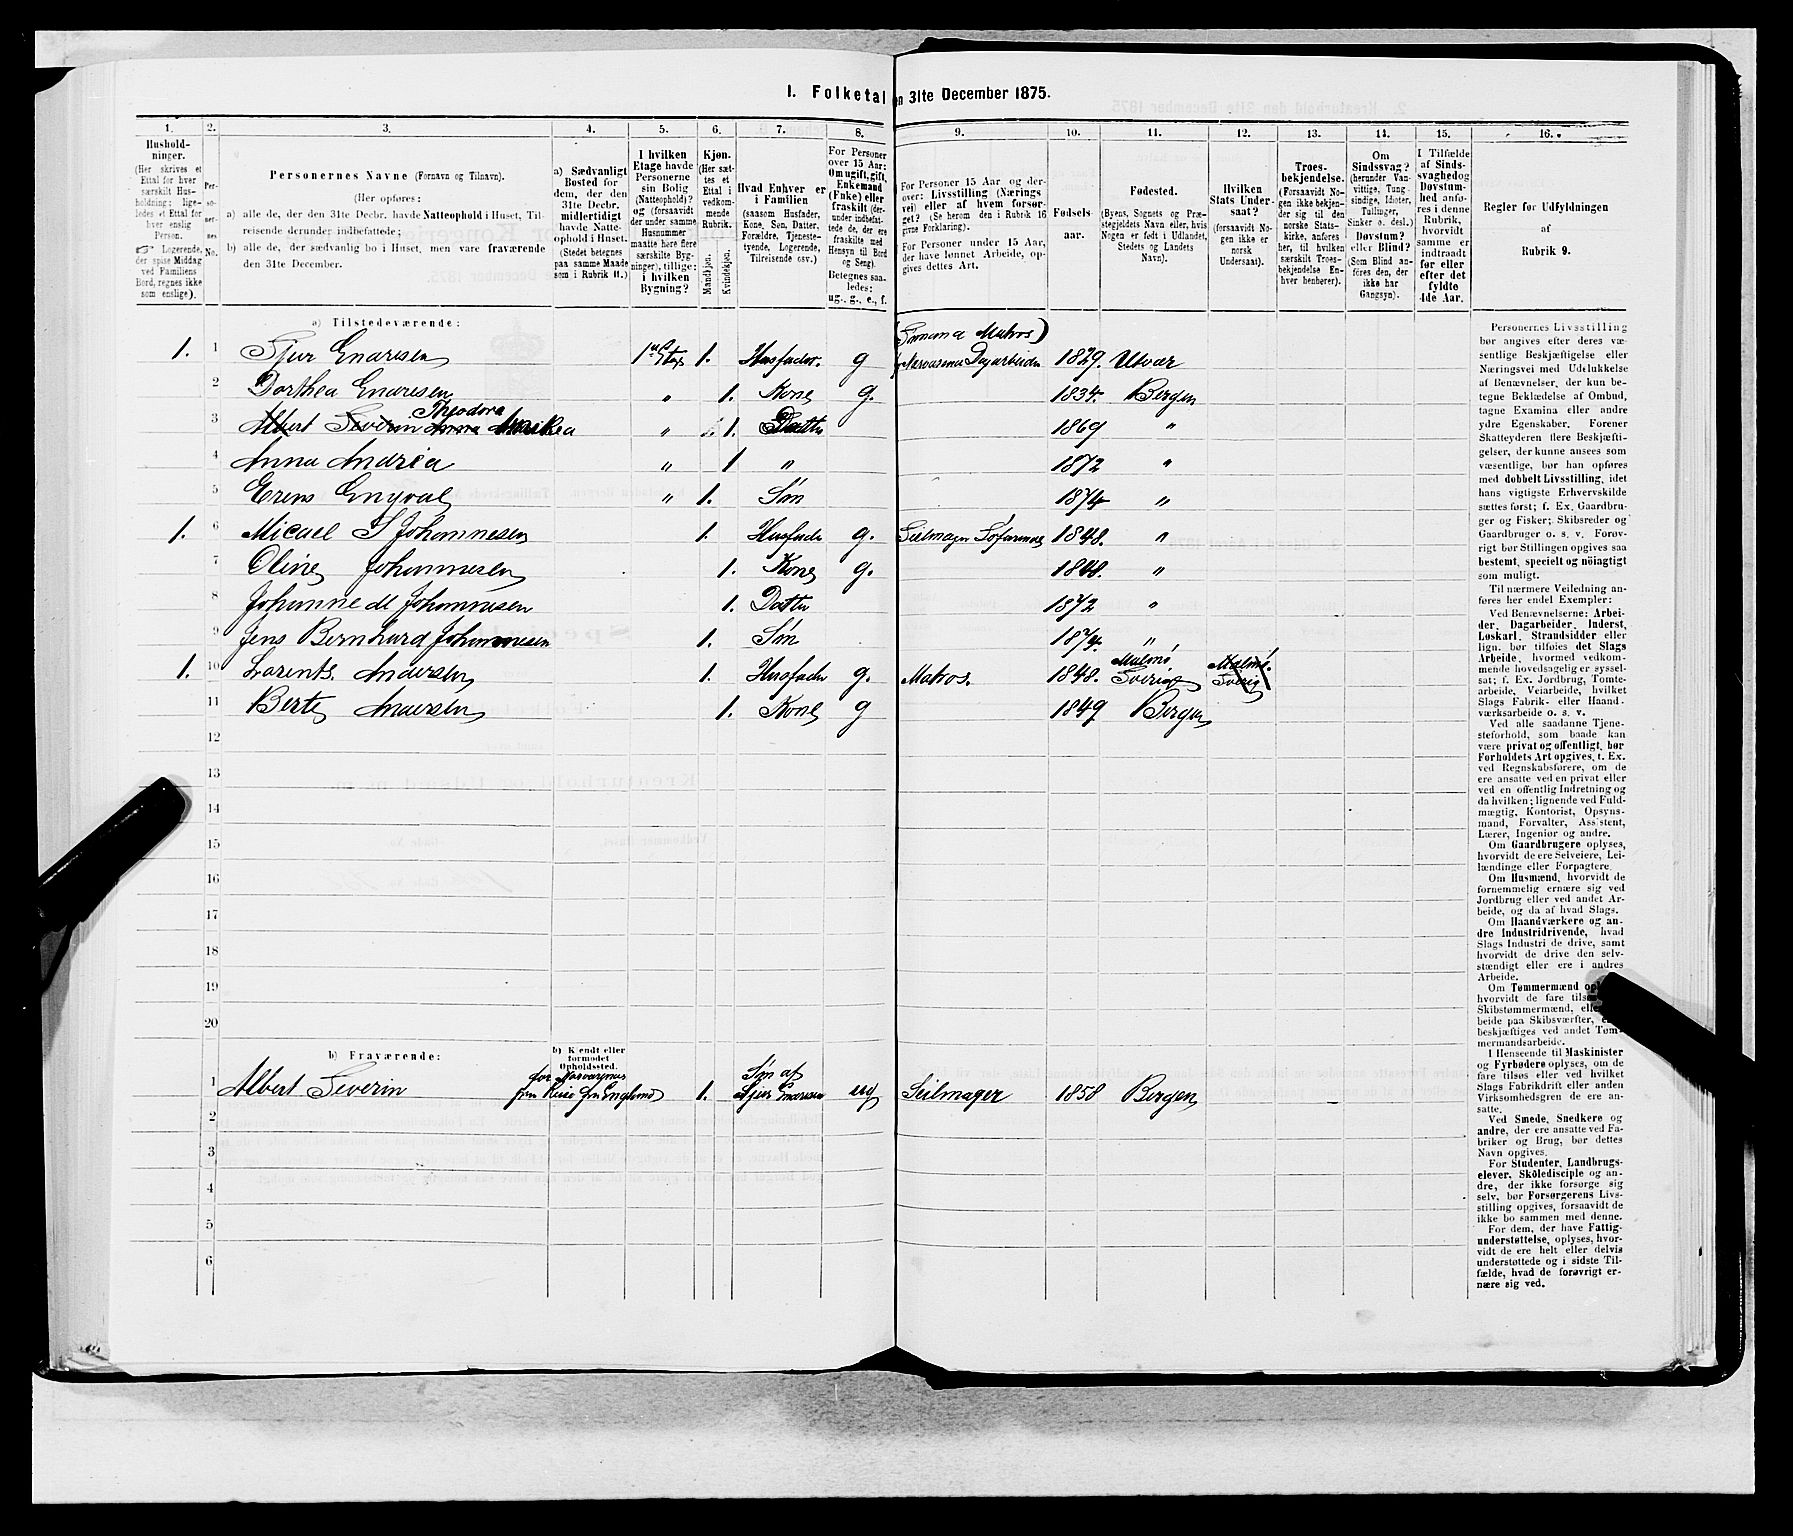 1. Folketal
en 31te December 1875.
1. 2. 3. 4. 5. 6. 7. 8. 9. 10. 11. 12. 13. 14. 15. 16.
Hushold-
ninger.
(Her skrives et
Ettal for hver
særskilt Hus-
holdning; lige-
ledes et Ettal for
hver enslig
Person.
Logerende,
der spise Middag
ved Familiens
Bord, regnes ikke
som enslige).
Per-
so-
ner-
nes
No.
Personernes Navne (Fornavn og Tilnavn).
(Her opføres:
a) alle de, der den 31te Decbr. havde Natteophold i Huset, Til-
reisende derunder indbefattede;
b) alle de, der sædvanlig bo i Huset, men vare fraværende
den 31te December.
a) Sædvanligt
Bosted for
dem, der den
31te Decbr.
midlertidigt
havde Natte-
ophold i Huset.
(Stedet betegnes
paa samme Maade
som i Rubrik 11.)
I hvilken
Etage havde
Personerne
sin Bolig
(Natteophold)?
og (forsaavidt
der under samme
Husnummer
maatte høre flere
særskilte Byg-
ninger), tillige:
i hvilken
Bygning?
Kjøn.
(Her sæt-
tes et
Ettal i
vedkom-
mende
Rubrik.
Mandkjøn.
Kvindekjøn.
Hvad Enhver er
i Familien
(saasom Husfader,
Kone, Søn, Datter,
Forældre, Tjeneste-
tyende, Logerende,
Tilreisende osv.)
For Personer
over 15 Aar:
Om ugift, gift,
Enkemand
(Enke) eller
fraskilt (der-
under indbefat-
tede de, der ere
fraskilte med
Hensyn til Bord
og Seng).
Betegnes saa-
ledes:
ug., g., e., f.
For Personer 15 Aar og der-
over: Livsstilling (Nærings-
vei) eller af hvem forsør-
get? (Se herom den i Rubrik 16
givne Forklaring).
For Personer under 15 Aar,
der have lønnet Arbeide, op-
gives dettes Art.
Fødsels-
aar.
Fødested.
(Byens, Sognets og Præ-
stegjeldets Navn eller, hvis
Nogen er født i Udlandet,
Stedets og Landets
Navn).
Hvilken
Stats Under-
saat?
(forsaavidt No-
gen ikke er
norsk
Undersaat).
Troes-
bekjendelse.
(Forsaavidt No-
gen ikke bekjen-
der sig til den
norske Stats-
kirke, anføres
her, til hvilken
særskilt Troes-
bekjendelse En-
hver henhører).
Om
Sindssvag?
(herunder Van-
vittige, Tung-
sindige, Idioter,
Tullinger,
Sinker o. desl.)
Døvstum?
eller Blind?
(Som Blind an-
føres den, der
ikke har
Gangsyn).
I Tilfælde
af Sinds-
svaghed og
Døvstum-
hed anfø-
res i denne
Rubrik,
hvorvidt
samme er
indtraadt
før eller
efter det
fyldte
4de Aar.
Regler før Udfyldningen
af
Rubrik 9.
a) Tilstedeværende:
1. 1 Sjur Enaresen 1ste Etag 1. Husfader. g (Smma Matros) Dagarbeider 1829. Utvær
2 Dorthea Enaresen " 1. Kone g. 1834. Bergen
3 Albert Severin Theodora Anna Annikea " 1. Datter 1869 "
4 Anna Andrea " 1 " 1872 "
5 Erens Engval " 1. Søn 1874 "
1. 6 Micael S Johannesen 1. Husfader g. Seilmager 1848. "
7 Oline Johannesen 1. Kone g. 1848. "
8 Johanne M Johannesen 1. Datter 1872 "
9 Jens Bernhard Johannesen 1. Søn 1874. "
1. 10 Larents Andersen 1. Husfader g. Matros. 1848. Malmø Sverige Malmø. Sverig
11 Berte Andersen 1. Kone g 1849 Bergen
12
13
14
15
16
17
18
19
20
b) Fraværende:
b) Kjendt eller
formodet
Opholdssted.
1 Albert Severin fra Reise fra England 1. Søn af Sjur Enaresen ug Seilmager 1858 Bergen
2
3
4
5
6
Personernes Livsstilling
bør angives efter deres væ-
sentlige Beskjæftigelse eller
Næringsvei med Udelukkelse
af Benævnelser, der kun be-
tegne Beklædelse af Ombud,
tagne Examina eller andre
ydre Egenskaber. Forener
Skatteyderen flere Beskjæfti-
gelser, der kunne ansees som
væsentlige, bør han opføres
med dobbelt Livsstilling, idet
hans vigtigste Erhvervskilde
sættes først; f. Ex. Gaardbru-
ger og Fisker; Skibsreder og
Gaardbruger o. s. v. Forøv-
rigt bør Stillingen opgives saa
bestemt, specielt og nöiagtigt
som muligt.
Til nærmere Veiledning an-
føres her endel Exempler:
Ved Benævnelserne: Arbei-
der, Dagarbeider, Inderst,
Løskarl, Strandsidder eller
lign. bør tilføies det Slags
Arbeide, hvormed vedkom-
mende hovedsagelig er syssel-
sat; f. Ex. Jordbrug, Tomte-
arbeide, Veiarbeide, hvilket
Slags Fabrik- eller Haand-
værksarbeide o. s. v.
Ved alle saadanne Tjene-
steforhold, som baade kan
være privat og offentligt, bør
Forholdets Art opgives, t. Ex.
ved Regnskabsførere, om de
ere ansatte ved en privat eller
ved en offentlig Indretning og
da hvilken; lignende ved Fuld-
mægtig, Kontorist, Opsyns-
mand, Forvalter, Assistent,
Lærer, Ingeniør og andre.
Om Gaardbrugere oplyses,
hvorvidt de ere Selveiere, Lei-
lændinge eller Forpagtere.
Om Husmænd, hvorvidt de
fornemmelig ernære sig ved
Jordbrug eller ved andet Ar-
beide, og da af hvad Slags.
Om Haandværkere og an-
dre industridrivende, hvad
Slags Industri de drive, samt
hvorvidt de drive den selv-
stændigt eller ere i andres
Arbeide.
Om Tømmermænd op
hvorvidt de fare tils
Skibstømmermænd, elle
beide paa Skibsværfter,
beskjæftiges ved andet Tøm-
mermandsarbeide.
I Henseende til Maskinister
og Fyrbødere oplyses, om de
fare tilsøs eller ved hvilket
Slags Fabrikdrift eller anden
Virksomhedsgren de ere an-
satte.
Ved Smede, Snedkere og
andre, der ere ansatte ved Fa-
briker og Brug, bør dettes
Navn opgives.
For Studenter, Landbrugs-
elever, Skôledisciple og an-
dre, der ikke forsørge sig
selv, bør Forsørgerens Livs-
stilling opgives, forsaavidt de
ikke bo sammen med denne.
For dem, der have Fattig-
understøttelse, oplyses, hvor-
vidt de ere helt eller delvis
understøttede og i sidste Til-
fælde, hvad de forøvrigt er-
nære sig ved.